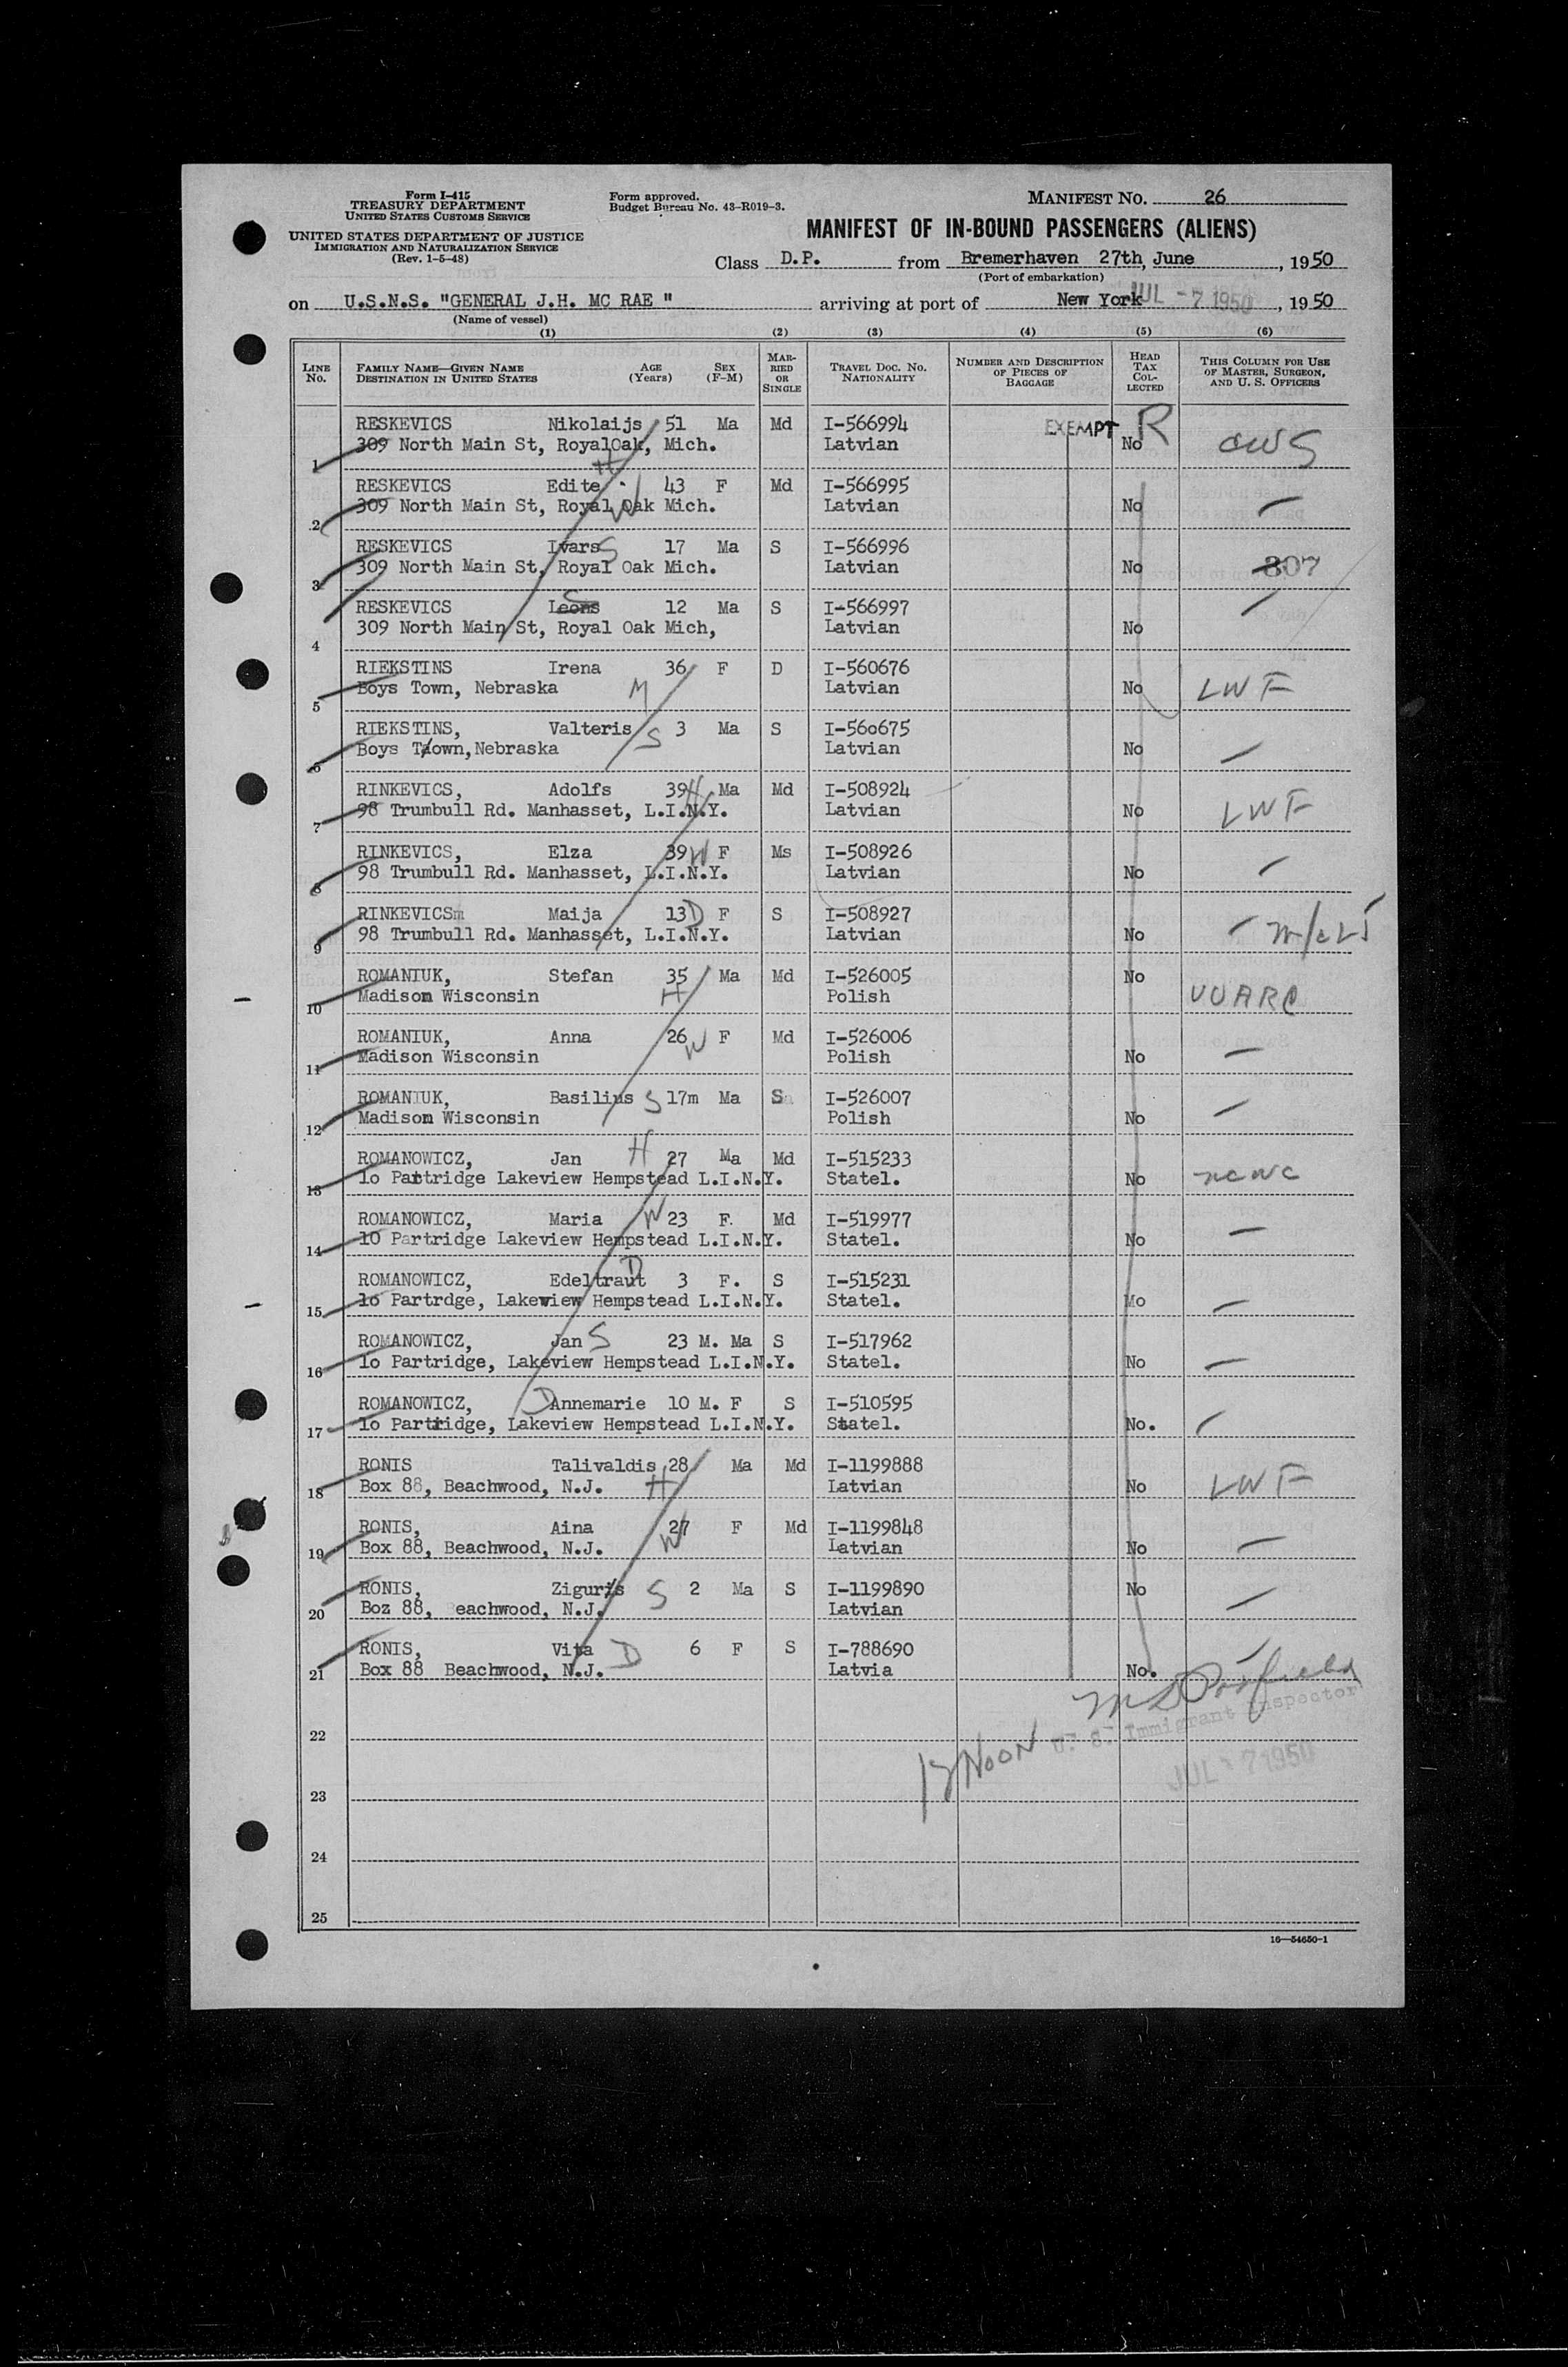 Form I-415
TREASURY DEPARTMENT
UNITED STATES CUSTOMS SERVICE
UNITED STATES DEPARTMENT OF JUSTICE
IMMIGRATION AND NATURALIZATION SERVICE
(Rev. 1-5-48)
Form approved.
Budget Bureau No. 43-R019-3.
MANIFEST NO. 26
MANIFEST OF IN-BOUND PASSENGERS (ALIENS)
Class D.P. from Bremerhaven 27th, June, 1950
(Port of embarkation)
on U.S.N.S. "GENERAL J.H. MC RAE " arriving at port of New York JUL - 7 1950, 1950
(Name of vessel)
(1) (2) (3) (4) (5) (6)
LINE No. FAMILY NAME—GIVEN NAME DESTINATION IN UNITED STATES AGE (Years) SEX (F-M) MARRIED OR SINGLE TRAVEL DOC. NO. NATIONALITY NUMBER AND DESCRIPTION OF PIECES OF BAGGAGE HEAD TAX COLLECTED THIS COLUMN FOR USE OF MASTER, SURGEON, AND U. S. OFFICERS
RESKEVICS Nikolaijs 51 Ma Md I-566994 EXEMPT R
1 309 North Main St, RoyalOak, Mich. H Latvian No CWS
RESKEVICS Edite 43 F Md I-566995
2 309 North Main St, Royal Oak Mich. W Latvian No —
RESKEVICS Ivars S 17 Ma S I-566996
3 309 North Main St, Royal Oak Mich. Latvian No 307
RESKEVICS Leons S 12 Ma S I-566997 —
4 309 North Main St, Royal Oak Mich, Latvian No
RIEKSTINS Irena 36 F D I-560676
5 Boys Town, Nebraska M Latvian No LWF
RIEKSTINS, Valteris 3 Ma S I-56o675
6 Boys T/own, Nebraska S Latvian No —
RINKEVICS, Adolfs 39 H Ma Md I-508924
7 98 Trumbull Rd. Manhasset, L.I.N.Y. Latvian No LWF
RINKEVICS, Elza 39 W F Ms I-508926
8 98 Trumbull Rd. Manhasset, L.I.N.Y. Latvian No —
RINKEVICSm Maija 13 D F S I-508927
9 98 Trumbull Rd. Manhasset, L.I.N.Y. Latvian No —
ROMANIUK, Stefan 35 Ma Md I-526005 No
10 Madison Wisconsin H Polish UUARC
ROMANIUK, Anna 26 W F Md I-526006
11 Madison Wisconsin Polish No —
ROMANIUK, Basilius S 17m Ma S I-526007
12 Madison Wisconsin Polish No —
ROMANOWICZ, Jan H 27 Ma Md I-515233
13 1o Partridge Lakeview Hempstead L.I.N.Y. Statel. No NCWC
ROMANOWICZ, Maria W 23 F. Md I-519977
14 10 Partridge Lakeview Hempstead L.I.N.Y. Statel. No —
ROMANOWICZ, Edeltraut D 3 F. S I-515231
15 1o Partrdge, Lakeview Hempstead L.I.N.Y. Statel. Mo —
ROMANOWICZ, Jan S 23 M. Ma S I-517962
16 1o Partridge, Lakeview Hempstead L.I.N.Y. Statel. No —
ROMANOWICZ, D Annemarie 10 M. F S I-510595
17 1o Partridge, Lakeview Hempstead L.I.N.Y. Statel. No. —
RONIS Talivaldis 28 Ma Md I-1199888
18 Box 88, Beachwood, N.J. H Latvian No LWF
RONIS, Aina 27 F Md I-1199848
19 Box 88, Beachwood, N.J. W Latvian No —
RONIS, Ziguris S 2 Ma S I-1199890 No
20 Boz 88, eachwood, N.J. Latvian —
RONIS, Vita D 6 F S I-788690 —
21 Box 88 Beachwood, N.J. Latvia No.
22 12 NOON U. S. Immigrant Inspector
JUL - 7 1950
23
24
25
16—54650-1